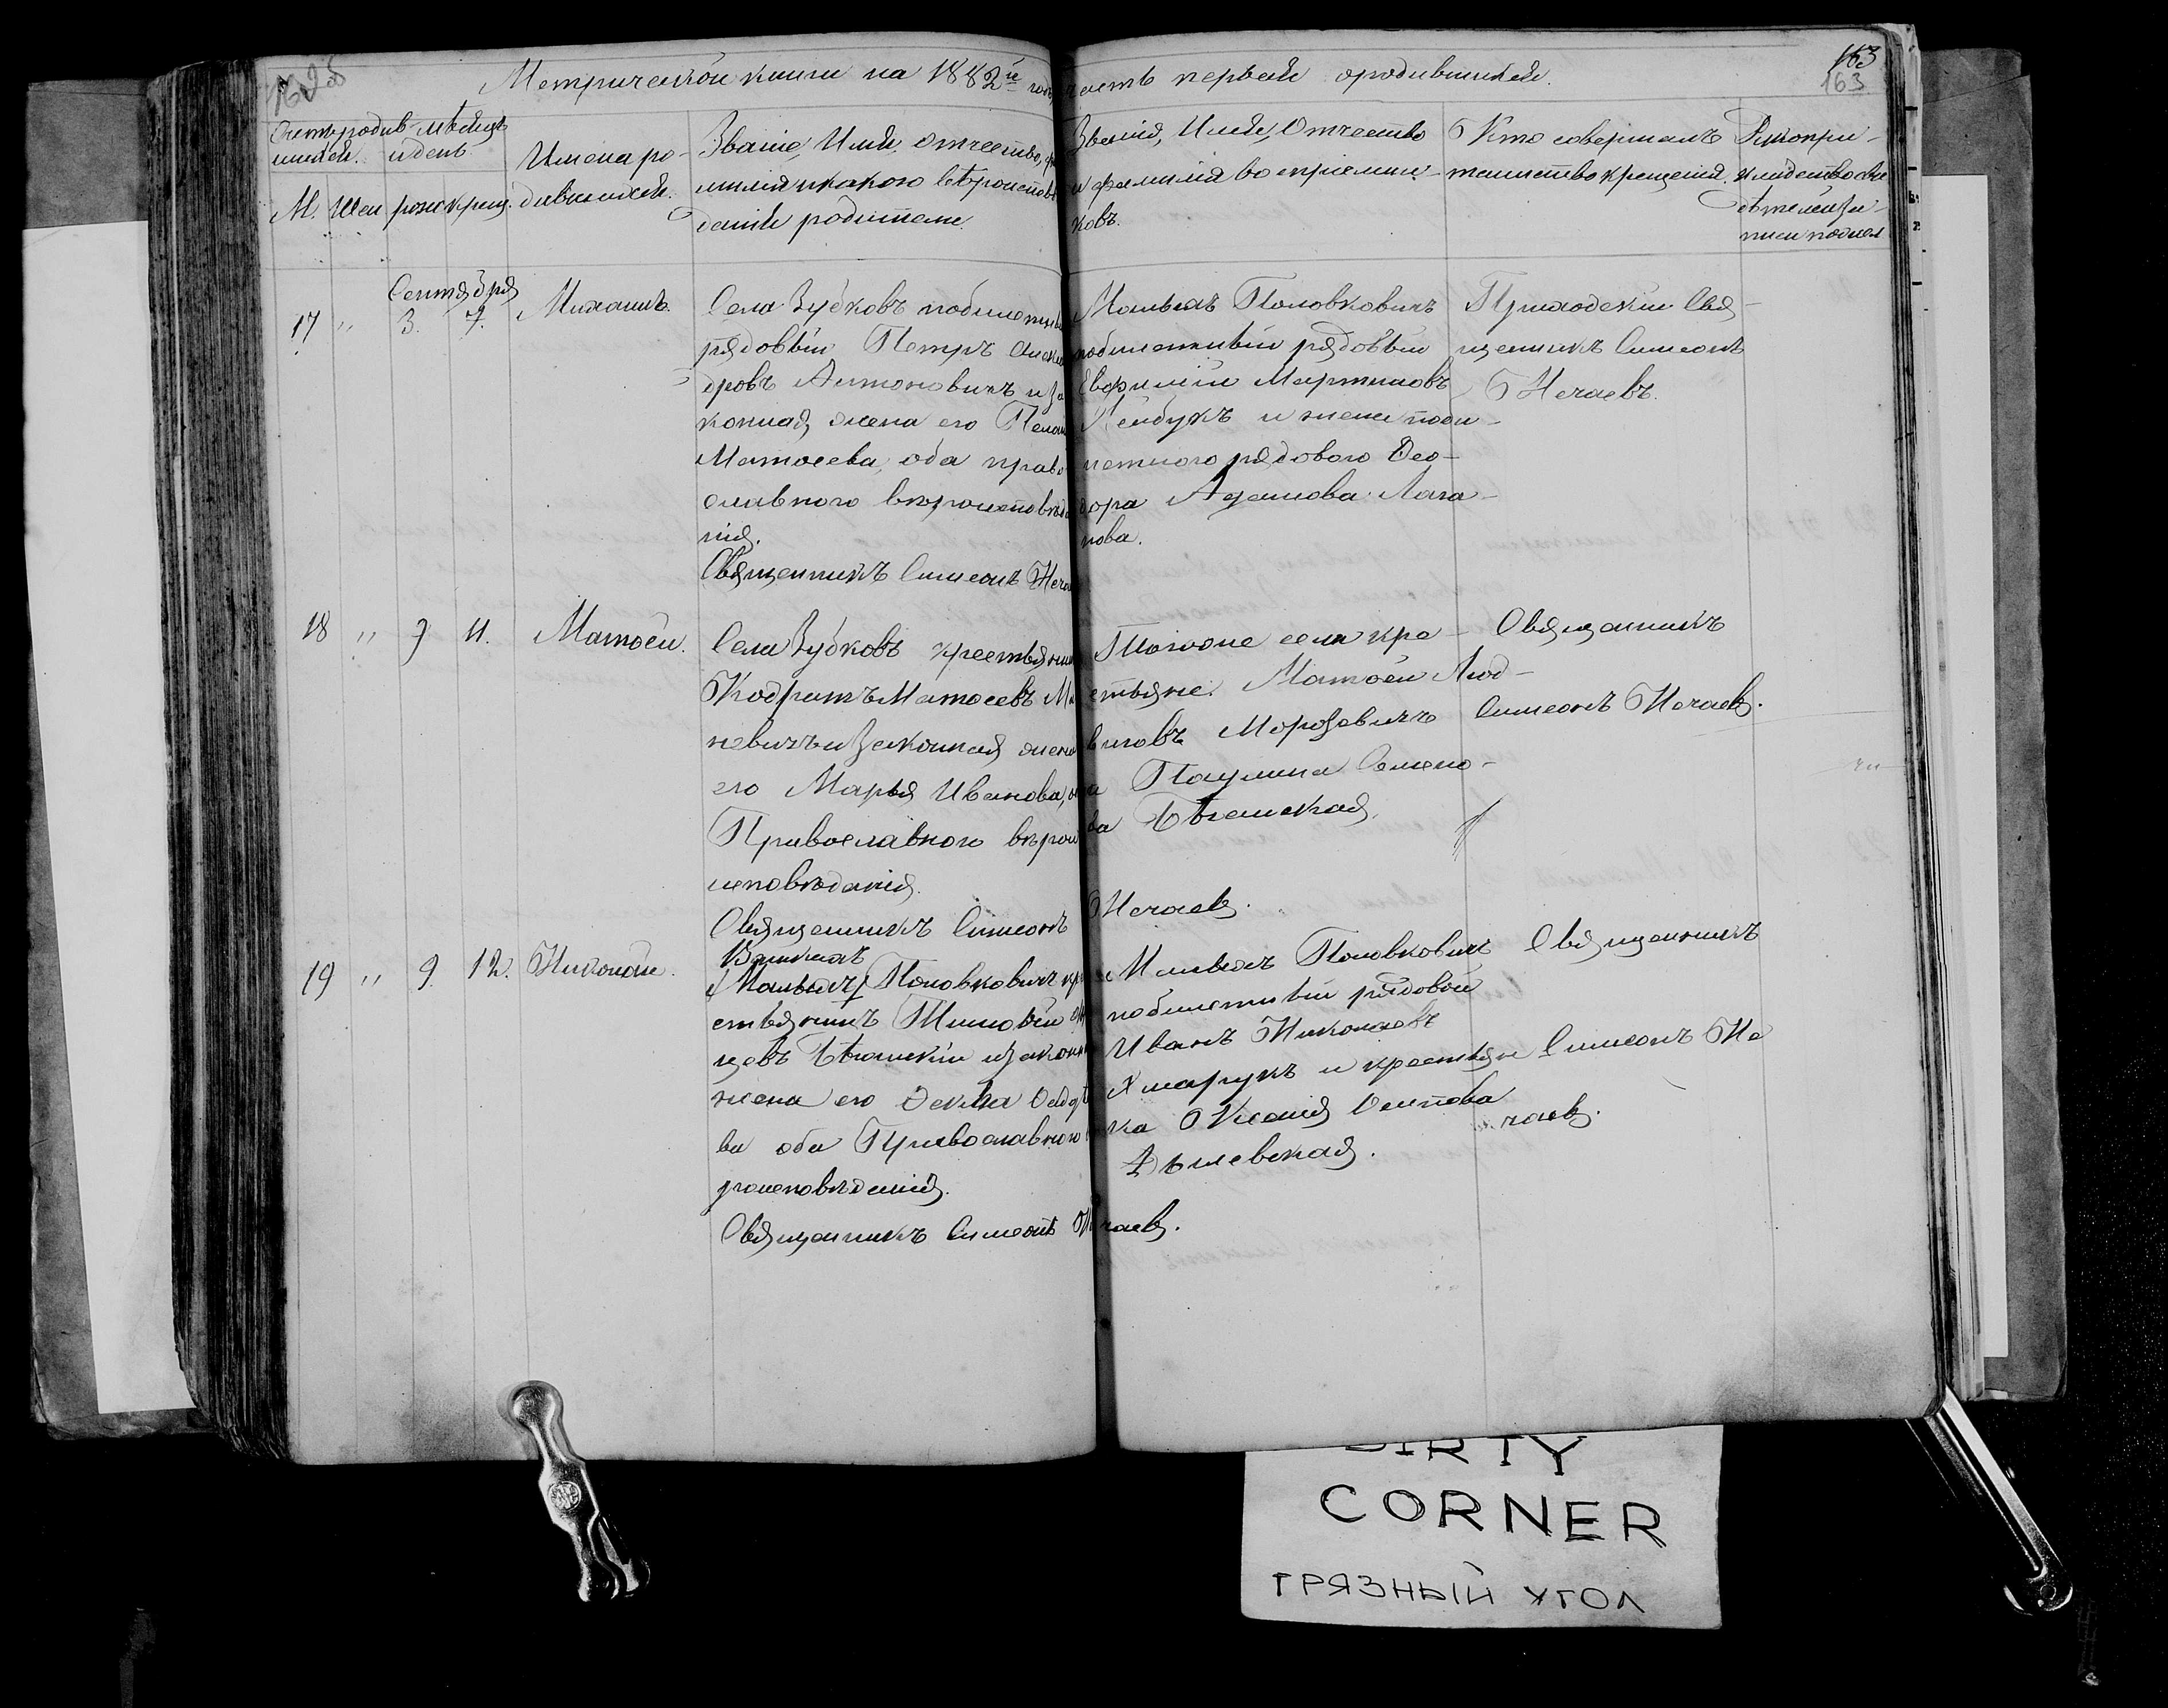 162 об
163
163
Метрической книги на 1882й годъ, часть первая о родившихся.
Счетъ родив- мѣсяцъ
шихся. и день.
М. Жен рож крещ.
Имена ро-
дившихся.
Званіе, Имя, отчество, фа
милія и какого вѣроисповѣ
данія родители.
Званія, Имя, Отчество
и фамилія воспріемни-
ковъ.
Кто совершалъ
таинство крещенія.
Рукопри-
кладство сви
дѣтелей за-
писи по жел
Сентября
17 " 3. 7. Михаилъ.
Села Зубковъ побилетный
рядовый Петръ Алексан
дровъ Антоновичъ и за
конная жена его Пелаг
Матѳеева, оба право
славного вѣроисповѣда
нія.
Священникъ Симеонъ Неча
Малыхъ Половковичъ
побилетный рядовый
Евфимій Мартиновъ
и жена поби-
летного рядового Ѳео-
дора Адамова Лага-
нова.
Приходскій Свя-
щенникъ Симеонъ
Нечаевъ.
18 " 9 11. Матѳей.
Села Зубковъ крестьянин
Кодратъ Матѳеевъ Ма
невичъ и законная жена
его Марья Иванова, об
Православного вѣрои
исповѣданія.
Священникъ Симеонъ Нечаевъ.
Тогоже села кре-
стьяне: Матѳей Люд-
виговъ Морозевичъ
и Паулина Семено-
ва Бѣгамская.
Священникъ
Симеонъ Нечаевъ.
19 " 9. 12. Николай.
Великихъ
Малыхъ Половковичъ кре
стьянинъ Тимоѳей
цевъ и законн
жена его Ѳекла
ва оба Православного
роисповѣданія.
Священникъ Симеонъ Нечаевъ.
Малыхъ Половковичъ
побилетный рядовой
Иванъ Николаевъ
Хмарукъ и крестьян
ка Ксенія Осипова
Дылевская.
Священникъ
Симеонъ Не
чаевъ.
DIRTY
CORNER
ГРЯЗНЫЙ УГОЛ